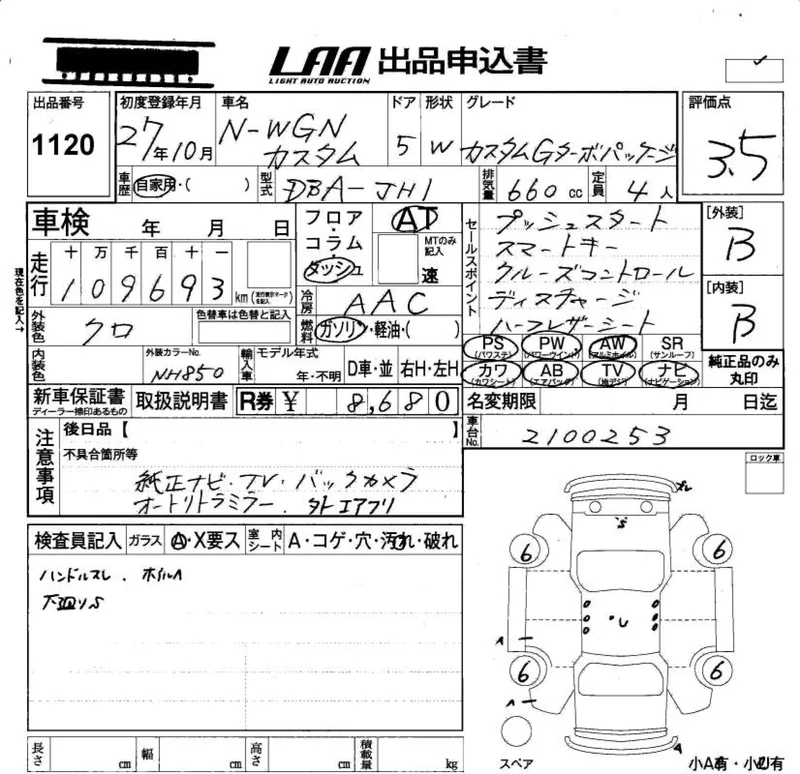 LAA 出品申込書
LIGHT AUTO AUCTION
出品番号 初度登録年月 車名 ドア 形状 グレード 評価点
1120 27年10月 N-WGN カスタム 5 W カスタムGターボパッケージ 3.5
車歴 自家用・( ) 型式 DBA-JH1 排気量 660cc 定員 4人
車検 年 月 日 フロア・コラム・ダッシュ AT MTのみ記入 速
セールスポイント
プッシュスタート
スマートキー
クルーズコントロール
ディスチャージ
ハーフレザーシート
[外装]
B
[内装]
B
現在色を記入→
走行 十 万 千 百 十 一
109693 km
冷房 AAC
燃料 ガソリン・軽油・( )
外装色 クロ 色替車は色替と記入
内装色 外装カラーNo. NH850 輸入車 モデル年式 年・不明 D車・並 右H・左H
PS (パワステ) PW (パワーウインド) AW (アルミホイル) SR (サンルーフ)
カワ (カワシート) AB (エアバッグ) TV (地デジ) ナビ (ナビゲーション)
純正品のみ丸印
新車保証書 ディーラー捺印あるもの 取扱説明書 R券 ¥ 8,680 名変期限 月 日迄
車台No. 2100253
注意事項
後日品【 】
不具合箇所等
純正ナビ・TV・バックカメラ
オートリトラミラー. 外エアフリ
ロック車
検査員記入 ガラス A・X要ス 室内シート A・コゲ・穴・汚れ・破れ
ハンドルスレ. ホイルA
下廻りS
S
U
6 6
6 6
A
A
A
スペア
小A有・小U有
長さ cm 幅 cm 高さ cm 積載量 kg